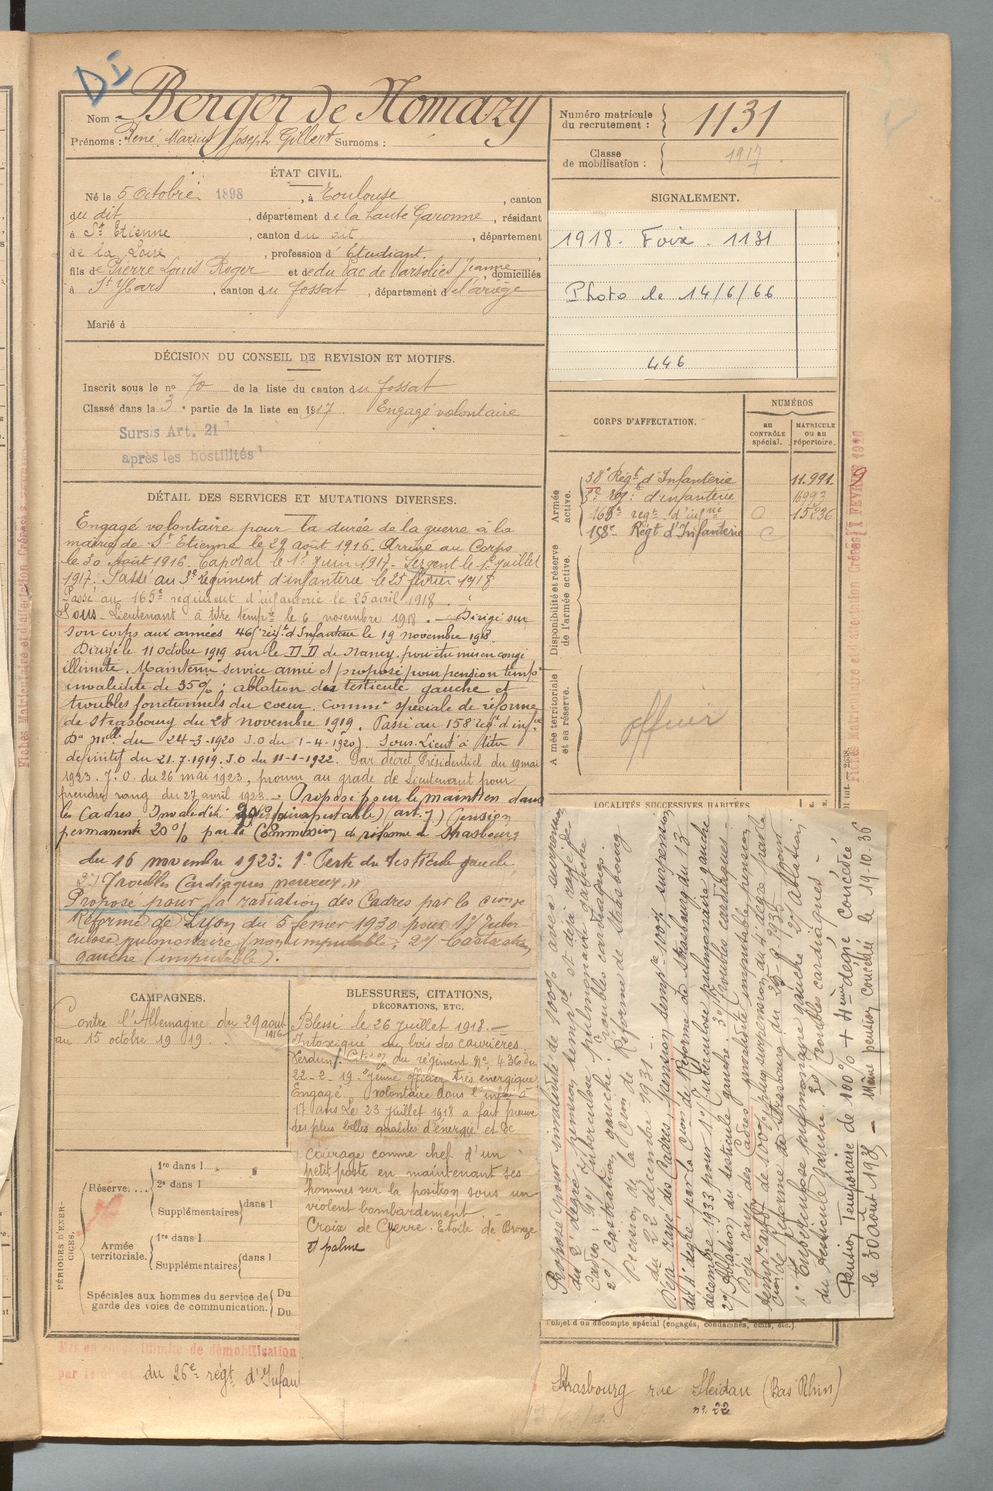 DI
Nom : Berger de Nomazy
Prénoms : René Marius Joseph Gilbert Surnoms :
Numéro matricule du recrutement : 1131
Classe de mobilisation : 1917
ÉTAT CIVIL.
Né le 5 Octobre 1898, à Toulouse, canton
du dit, département de la Haute Garonne, résidant
à St Etienne, canton du dit, département
de la Loire, profession d'Etudiant.
fils de Pierre Louis Roger et de du Lac de Jeanne domiciliés
à St Ybars, canton du fossat, département de l'ariège
Marié à
SIGNALEMENT.
1918. Foix. 1131
Photo le 14/6/66
446
DÉCISION DU CONSEIL DE REVISION ET MOTIFS.
Inscrit sous le no 70 de la liste du canton du fossat
Classé dans la 3e partie de la liste en 1917. Engagé volontaire
Sursis Art. 21
après les hostilités
CORPS D'AFFECTATION.
NUMÉROS
AU CONTRÔLE spécial.
MATRICULE OU AU répertoire.
Armée active.
38e Régt d'Infanterie 11.991
3e reg: d'infanterie
165e regt d'infrie 15236
158e Régt d'Infanterie
Disponibilité et réserve de l'armée active.
Armée territoriale et sa réserve.
officier
DÉTAIL DES SERVICES ET MUTATIONS DIVERSES.
Engagé volontaire pour la durée de la guerre à la
mairie de St Etienne le 29 août 1916. Arrivé au Corps
le 30 Août 1916. Caporal le 1er Juin 1917. Sergent le 1er Juillet
1917. Passé au 3e régiment d'infanterie le 25 février 1918
Passé au 165e régiment d'infanterie le 25 avril 1918.
Sous-Lieutenant à titre tempre le 6 novembre 1918. — Dirigé sur
son corps aux armées 46e régt d'Infanterie le 19 novembre 1918.
Dirigé le 11 octobre 1919 sur le D.D. de Nancy pour être mis en congé
illimité. Maintenu service armé et proposé pour pension tempre
invalidité de 35%: ablation du testicule gauche et
troubles fonctionnels du coeur. Common spéciale de réforme
de Strasbourg du 28 novembre 1919. Passé au 158e regt d'infie
Don mlle du 24-3-1920 J.O du 1-4-1920). Sous-Lieut à titre
définitif du 21.7.1919. J.O du 11-1-1922. Par décret Présidentiel du 19 mai
1923. J.O. du 26 mai 1923. promu au grade de Lieutenant pour
prendre rang du 27 avril 1923. - Proposé pour le maintien dans
les Cadres. Invalidité (art. 7) pension
permanente 20% par la Commission de réforme de Strasbourg
du 16 novembre 1923: 1° Perte du testicule gauche
2°) Troubles Cardiaques nerveux."
Proposé pour la radiation des Cadres par la Cion de
Réforme de Lyon du 5 février 1930 pour 1°/ Tuber
culose pulmonaire (non imputable; 2°/ Castration
gauche (imputable).
LOCALITÉS SUCCESSIVES HABITÉES
Proposé pour invalidité de 100% avec surpension
du 2e degré / pension tempre et déjà rayé des
Cadres. 1°/ Tuberculose pulmonaire gauche
2°/ Castration gauche. 3°/ Troubles cardiaques.
Décision de la Cion de Réforme de Strasbourg
du 22 décembre 1931.
Déjà rayé des Cadres, pension tempre 100% surpension
du 4e degré par la Cion de Réforme de Strasbourg du 13
décembre 1933 pour 1°/ Tuberculose pulmonaire gauche
2°/ Ablation du testicule gauche. 3°/ Troubles cardiaques.
Déjà rayé des Cadres, invalidité imputable, pension
temporaire de 100% plus surpension du 4e degré par la
Cion de réforme de Strasbourg du 20-9-1935 pour
1° Tuberculose pulmonaire gauche 2°) Ablation
du testicule gauche. 3°) Troubles cardiaques -
Pension Temporaire de 100% + 4ème dégré concédée
le 30 août 1935, - Même pension concédée le 19.10.36
CAMPAGNES.
Contre l'Allemagne du 29 août 1916
au 15 octobre 1919.
BLESSURES, CITATIONS,
DÉCORATIONS, ETC.
Blessé le 26 juillet 1918. —
Intoxiqué au bois des caurières
Verdun. Cité à du régiment No 436 du
22-2-19 "Jeune officier très énergique
Engagé volontaire dans l'infie à
17 ans. Le 23 juillet 1918 a fait preuve
des plus belles qualités d'énergie et de
courage comme chef d'un
petit poste en maintenant ses
hommes sur la position sous un
violent bombardement.
Croix de Guerre. Etoile de Bronze
palme
PÉRIODES D'EXERCICES.
Réserve....
1re dans l
2e dans l
Supplémentaires dans l
Armée territoriale.
1re dans l
Supplémentaires dans l
Spéciales aux hommes du service de garde des voies de communication.
Du
Du
l'objet d'un décompte spécial (engagés, condamnés, émis, etc.).
Mis en congé illimité de démobilisation
par le du 26e régt d'Infan
Strasbourg rue Sleidan (Bas Rhin)
no. 22